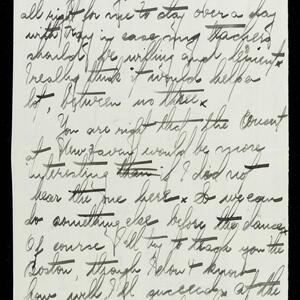 all right for me to stay over a day
with Tray in case my teachers
should be willing and lenient.
I really think it would help a
lot, between us three.
You are right that the concert
at New Haven would be more
interesting than if I did not
hear the one here. So we can
do something else before the dance.
Of course I'll try to teach you the
Boston, though I don't know
how well I'll succeed, at the